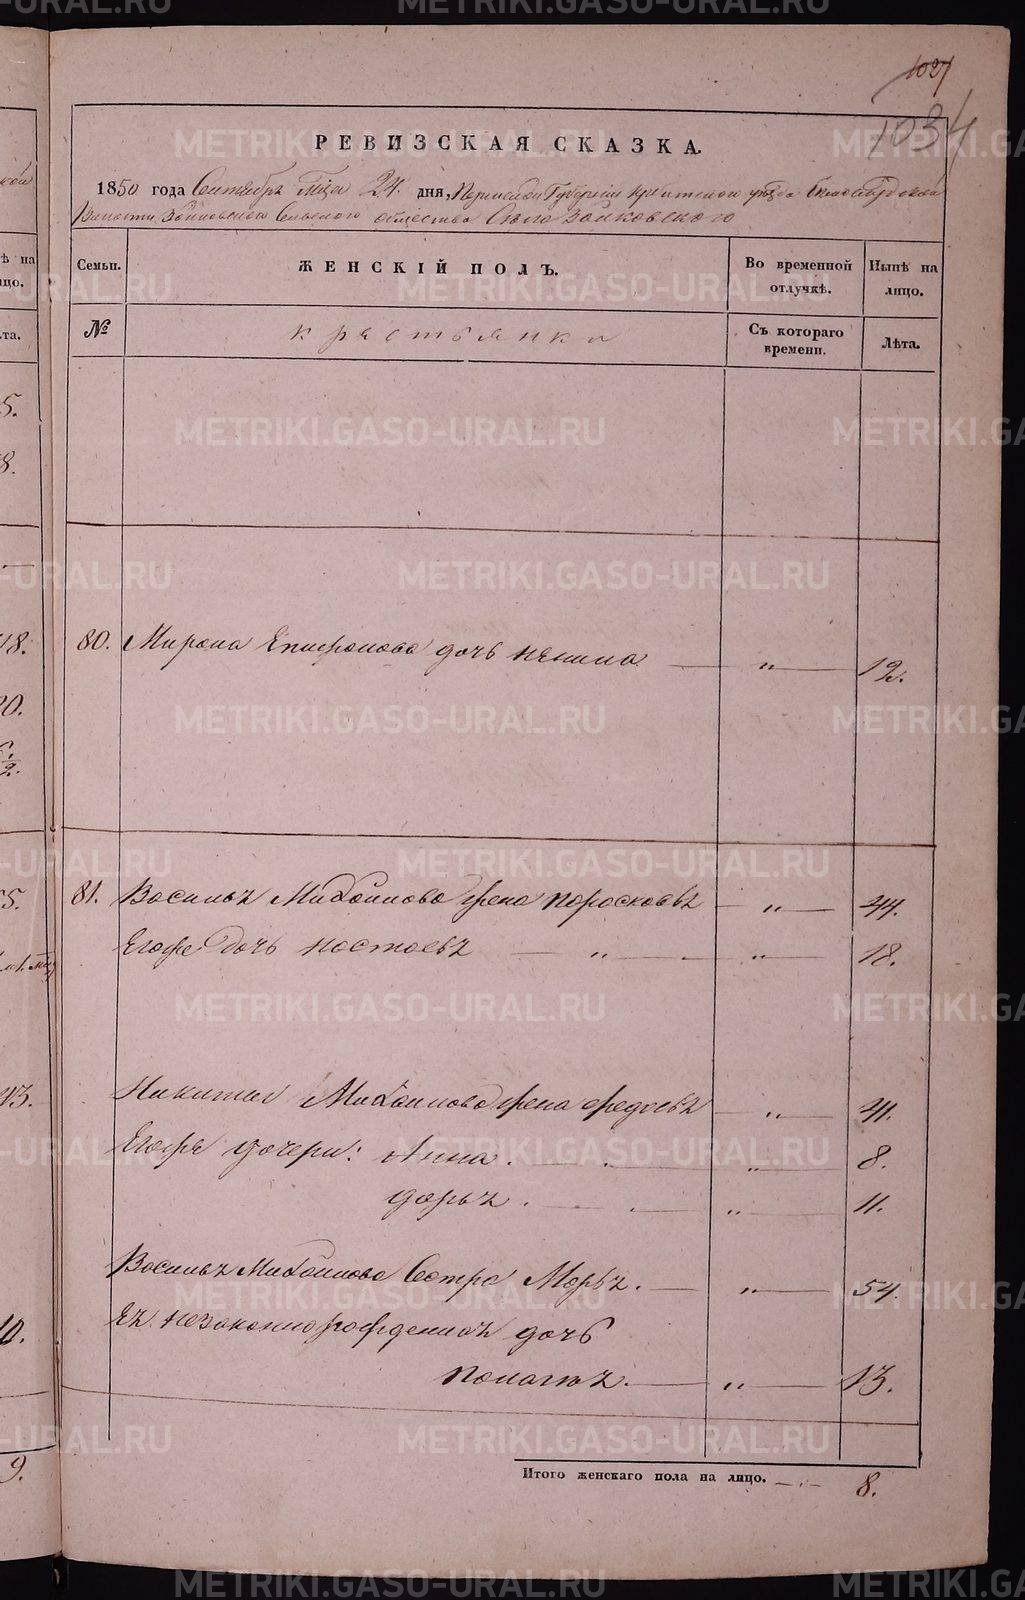 1027
1034
РЕВИЗСКАЯ СКАЗКА.
1850 года Сентября м-ца 24 дня, Пермской Губерніи Ирбитскаго уѣзда
Волости, Зайковскаго Сельскаго общества Села Зайковскаго
Семьи. ЖЕНСКІЙ ПОЛЪ. Во временной отлучкѣ. Нынѣ на лицо.
№ крестьянки Съ котораго времени. Лѣта.
80. Мирона Епифанова дочь Ненила — „ — 12.
81. Василья Михайлова жена Парасковья — „ — 44.
Егоже дочь Настасья — „ — „ — 18.
Никиты Михайлова жена Федосья — „ — 41.
Егожъ дочери: Анна. — „ — 8.
Дарья. — „ — 11.
Василья Михайлова Сестра Марья. — „ — 54.
Ея незаконнорожденная дочь
Палагья. — „ — 13.
Итого женскаго пола на лицо. — 8.
METRIKI.GASO-URAL.RU